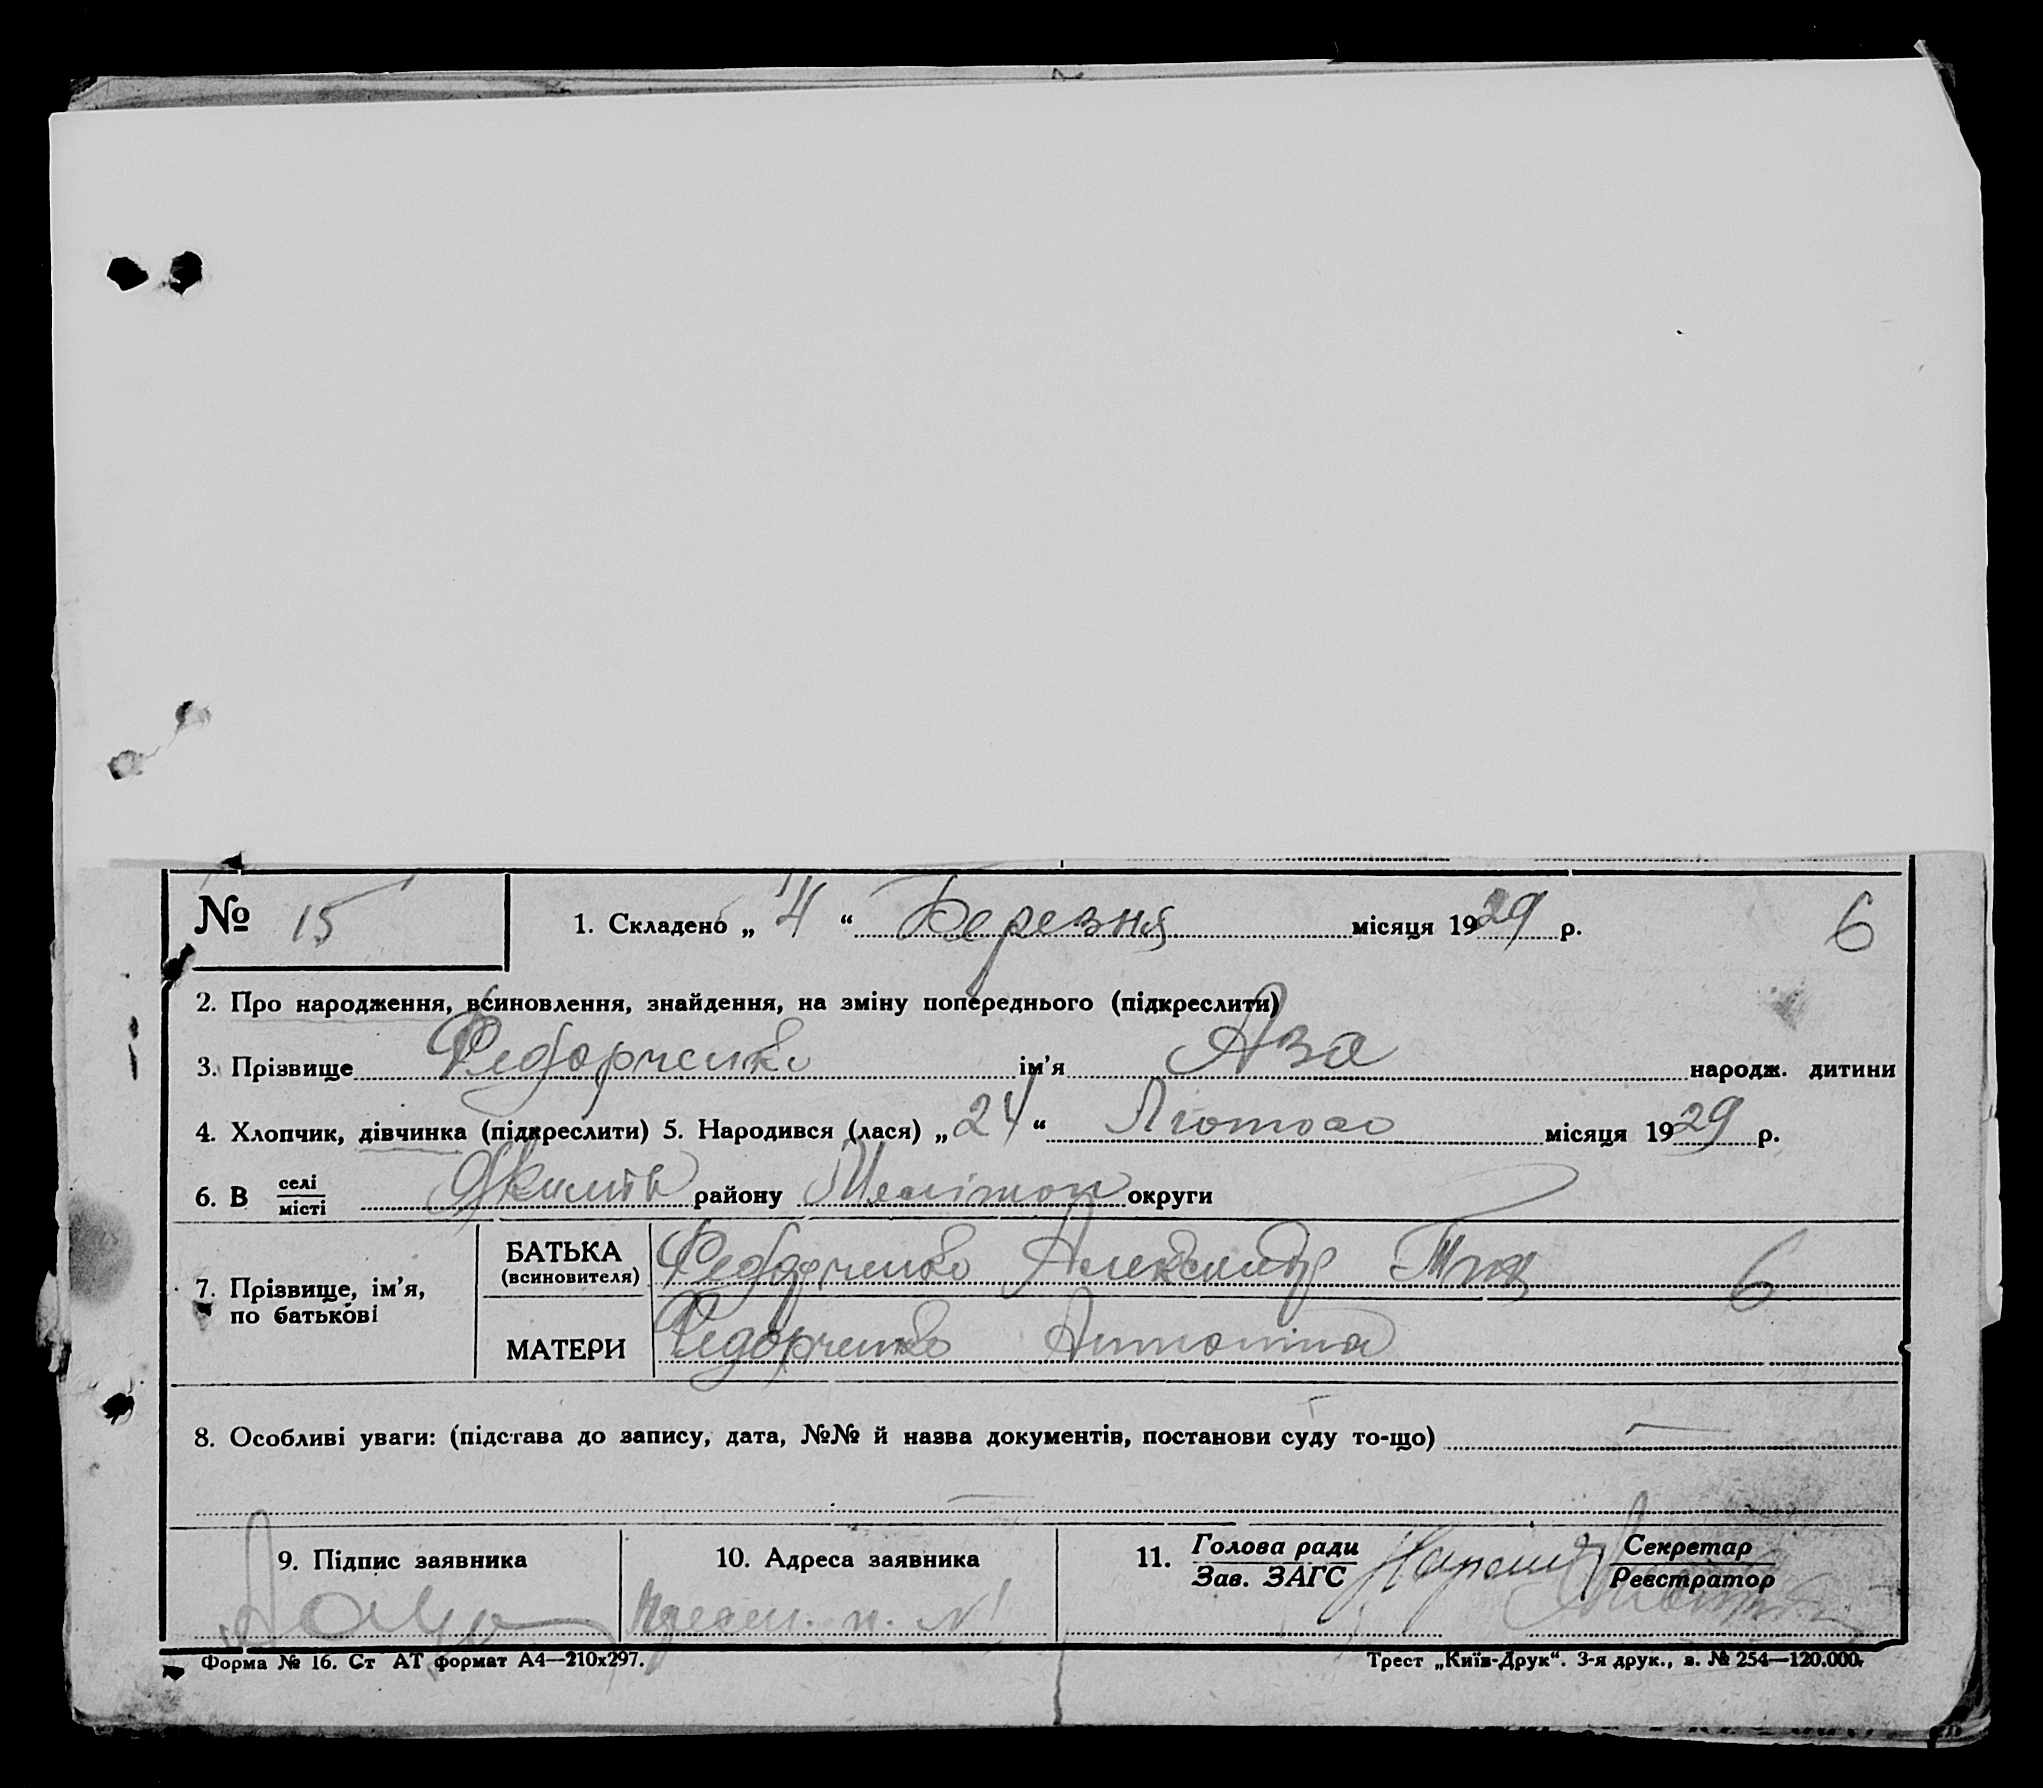 № 15 1. Складено „ 4 “ Березня місяця 1929 р. 6
2. Про народження, всиновлення, знайдення, на зміну попереднього (підкреслити)
3. Прізвище Федорченко ім'я Аза народж. дитини
4. Хлопчик, дівчинка (підкреслити) 5. Народився (лася) „ 24 “ Лютого місяця 1929 р.
6. В селі місті району округи
7. Прізвище, ім'я, по батькові
БАТЬКА (всиновителя) Федорченко Александр 6
МАТЕРИ Федорченко Антоніна
8. Особливі уваги: (підстава до запису, дата, №№ й назва документів, постанови суду то-що) —
—
9. Підпис заявника 10. Адреса заявника 11. Голова ради Зав. ЗАГС Секретар Реєстратор
Форма № 16. Ст АТ формат А4—210х297. Трест „Київ-Друк“. 3-я друк., з. № 254—120.000.